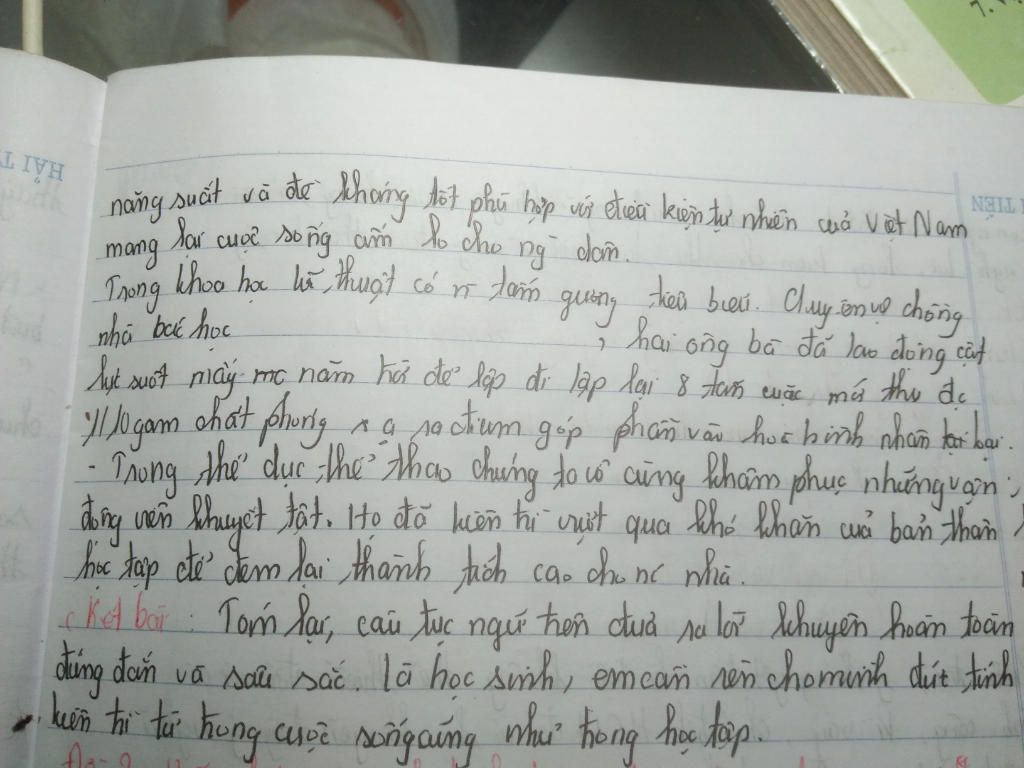 7.
HẢI T
TIẾN
năng suất và đề kháng tốt phù hợp với điều kiện tự nhiên của Việt Nam
mang lại cuộc sống ấm lo cho ng dân.
Trong khoa học kĩ, thuật có n tấm gương tiêu biểu. Chuyện vợ chồng
nhà bác học , hai ông bà đã lao động cật
lực suốt mấy mc năm trời để lập đi lập lại 8 tấn quặc mới thu đc
1/10gam chất phóng xạ radium góp phần vào hoà bình nhân loại.
- Trong thể dục, thể thao chúng ta vô cùng khâm phục những vận
động viên khuyết tật. Họ đã kiên trì vượt qua khó khăn của bản thân
học tập để đem lại thành tích cao cho nc nhà.
c Kết bài : Tóm lại, câu tục ngữ trên đưa ra lời khuyên hoàn toàn
đúng đắn và sâu sắc. Là học sinh, em cần rèn cho mình đức tính
kiên trì từ trong cuộc sống cũng như trong học tập.